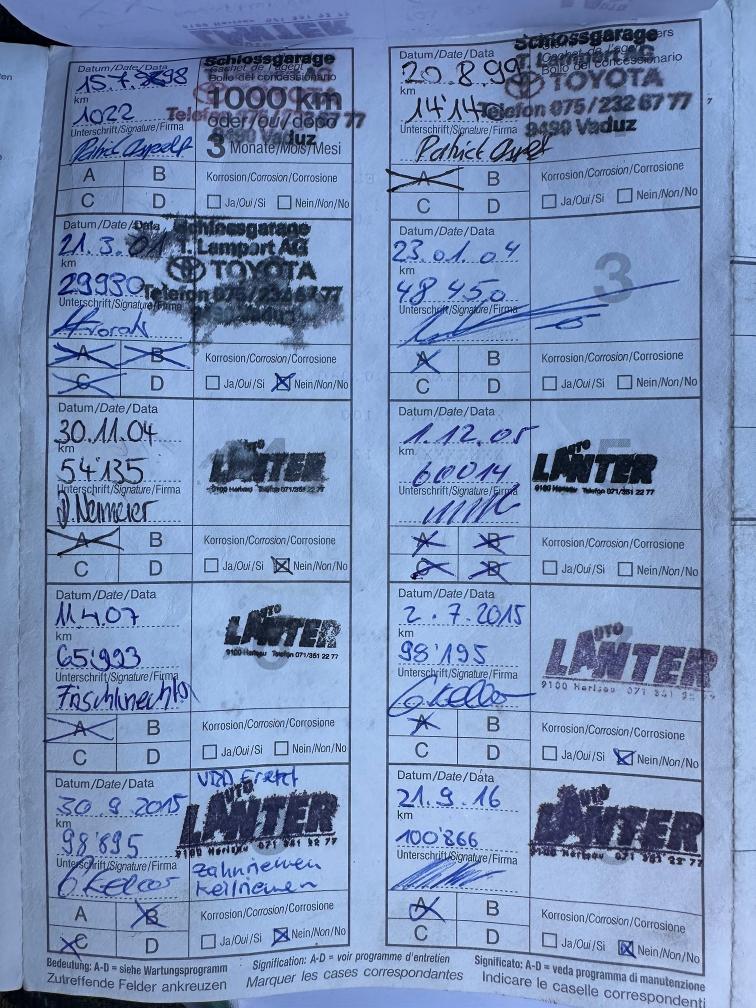 Schlossgarage
Datum/Date/Data
15.7.98
Bollo del concessionario
km
1022
1000 km
oder/ou/dopo
Unterschrift/Signature/Firma
9490 Vaduz
3 Monate/Mois/Mesi
A B
Korrosion/Corrosion/Corrosione
C D
Ja/Oui/Si Nein/Non/No
Schlossgarage
Datum/Date/Data
20.8.99
T. Lampert AG
Bollo del concessionario
TOYOTA
km
Telefon 075/232 67 77
Unterschrift/Signature/Firma
9490 Vaduz
A B
Korrosion/Corrosion/Corrosione
C D
Ja/Oui/Si Nein/Non/No
Datum/Date/Data
Schlossgarage
21.3.01
T. Lampert AG
km
TOYOTA
29930
Telefon 075/232 67 77
Unterschrift/Signature/Firma
A B
Korrosion/Corrosion/Corrosione
C D
Ja/Oui/Si Nein/Non/No
Datum/Date/Data
23.01.04
3
km
48450
Unterschrift/Signature/Firma
A B
Korrosion/Corrosion/Corrosione
C D
Ja/Oui/Si Nein/Non/No
Datum/Date/Data
30.11.04
km
AUTO
LANTER
54'135
9100 Herisau Telefon 071/351 22 77
Unterschrift/Signature/Firma
A B
Korrosion/Corrosion/Corrosione
C D
Ja/Oui/Si Nein/Non/No
Datum/Date/Data
1.12.05
km
AUTO
LANTER
60014
9100 Herisau Telefon 071/351 22 77
Unterschrift/Signature/Firma
A B
Korrosion/Corrosion/Corrosione
C D
Ja/Oui/Si Nein/Non/No
Datum/Date/Data
11.4.07
AUTO
LANTER
km
65'993
9100 Herisau Telefon 071/351 22 77
Unterschrift/Signature/Firma
A B
Korrosion/Corrosion/Corrosione
C D
Ja/Oui/Si Nein/Non/No
Datum/Date/Data
2.7.2015
AUTO
km
LANTER
98'195
9100 Herisau 071 351 22 77
Unterschrift/Signature/Firma
A B
Korrosion/Corrosion/Corrosione
C D
Ja/Oui/Si Nein/Non/No
Datum/Date/Data
30.9.2015
AUTO
km
LANTER
98'895
9100 Herisau 071 351 22 77
Unterschrift/Signature/Firma
Zahnriemen
Keilriemen
A B
Korrosion/Corrosion/Corrosione
C D
Ja/Oui/Si Nein/Non/No
Datum/Date/Data
21.9.16
AUTO
km
LANTER
100'866
9100 Herisau 071 351 22 77
Unterschrift/Signature/Firma
A B
Korrosion/Corrosion/Corrosione
C D
Ja/Oui/Si Nein/Non/No
Bedeutung: A-D = siehe Wartungsprogramm Signification: A-D = voir programme d'entretien Significato: A-D = veda programma di manutenzione
Zutreffende Felder ankreuzen Marquer les cases correspondantes Indicare le caselle corrispondenti